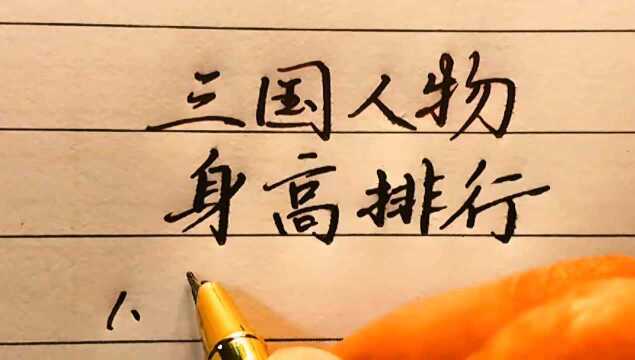 三国人物
身高排行